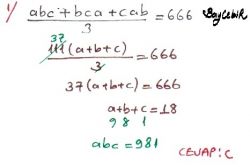 1) abc + bca + cab / 3 = 666 BayÇınar
37
111(a+b+c) / 3 = 666
37(a+b+c) = 666
a+b+c = 18
9 8 1
abc = 981
CEVAP: C